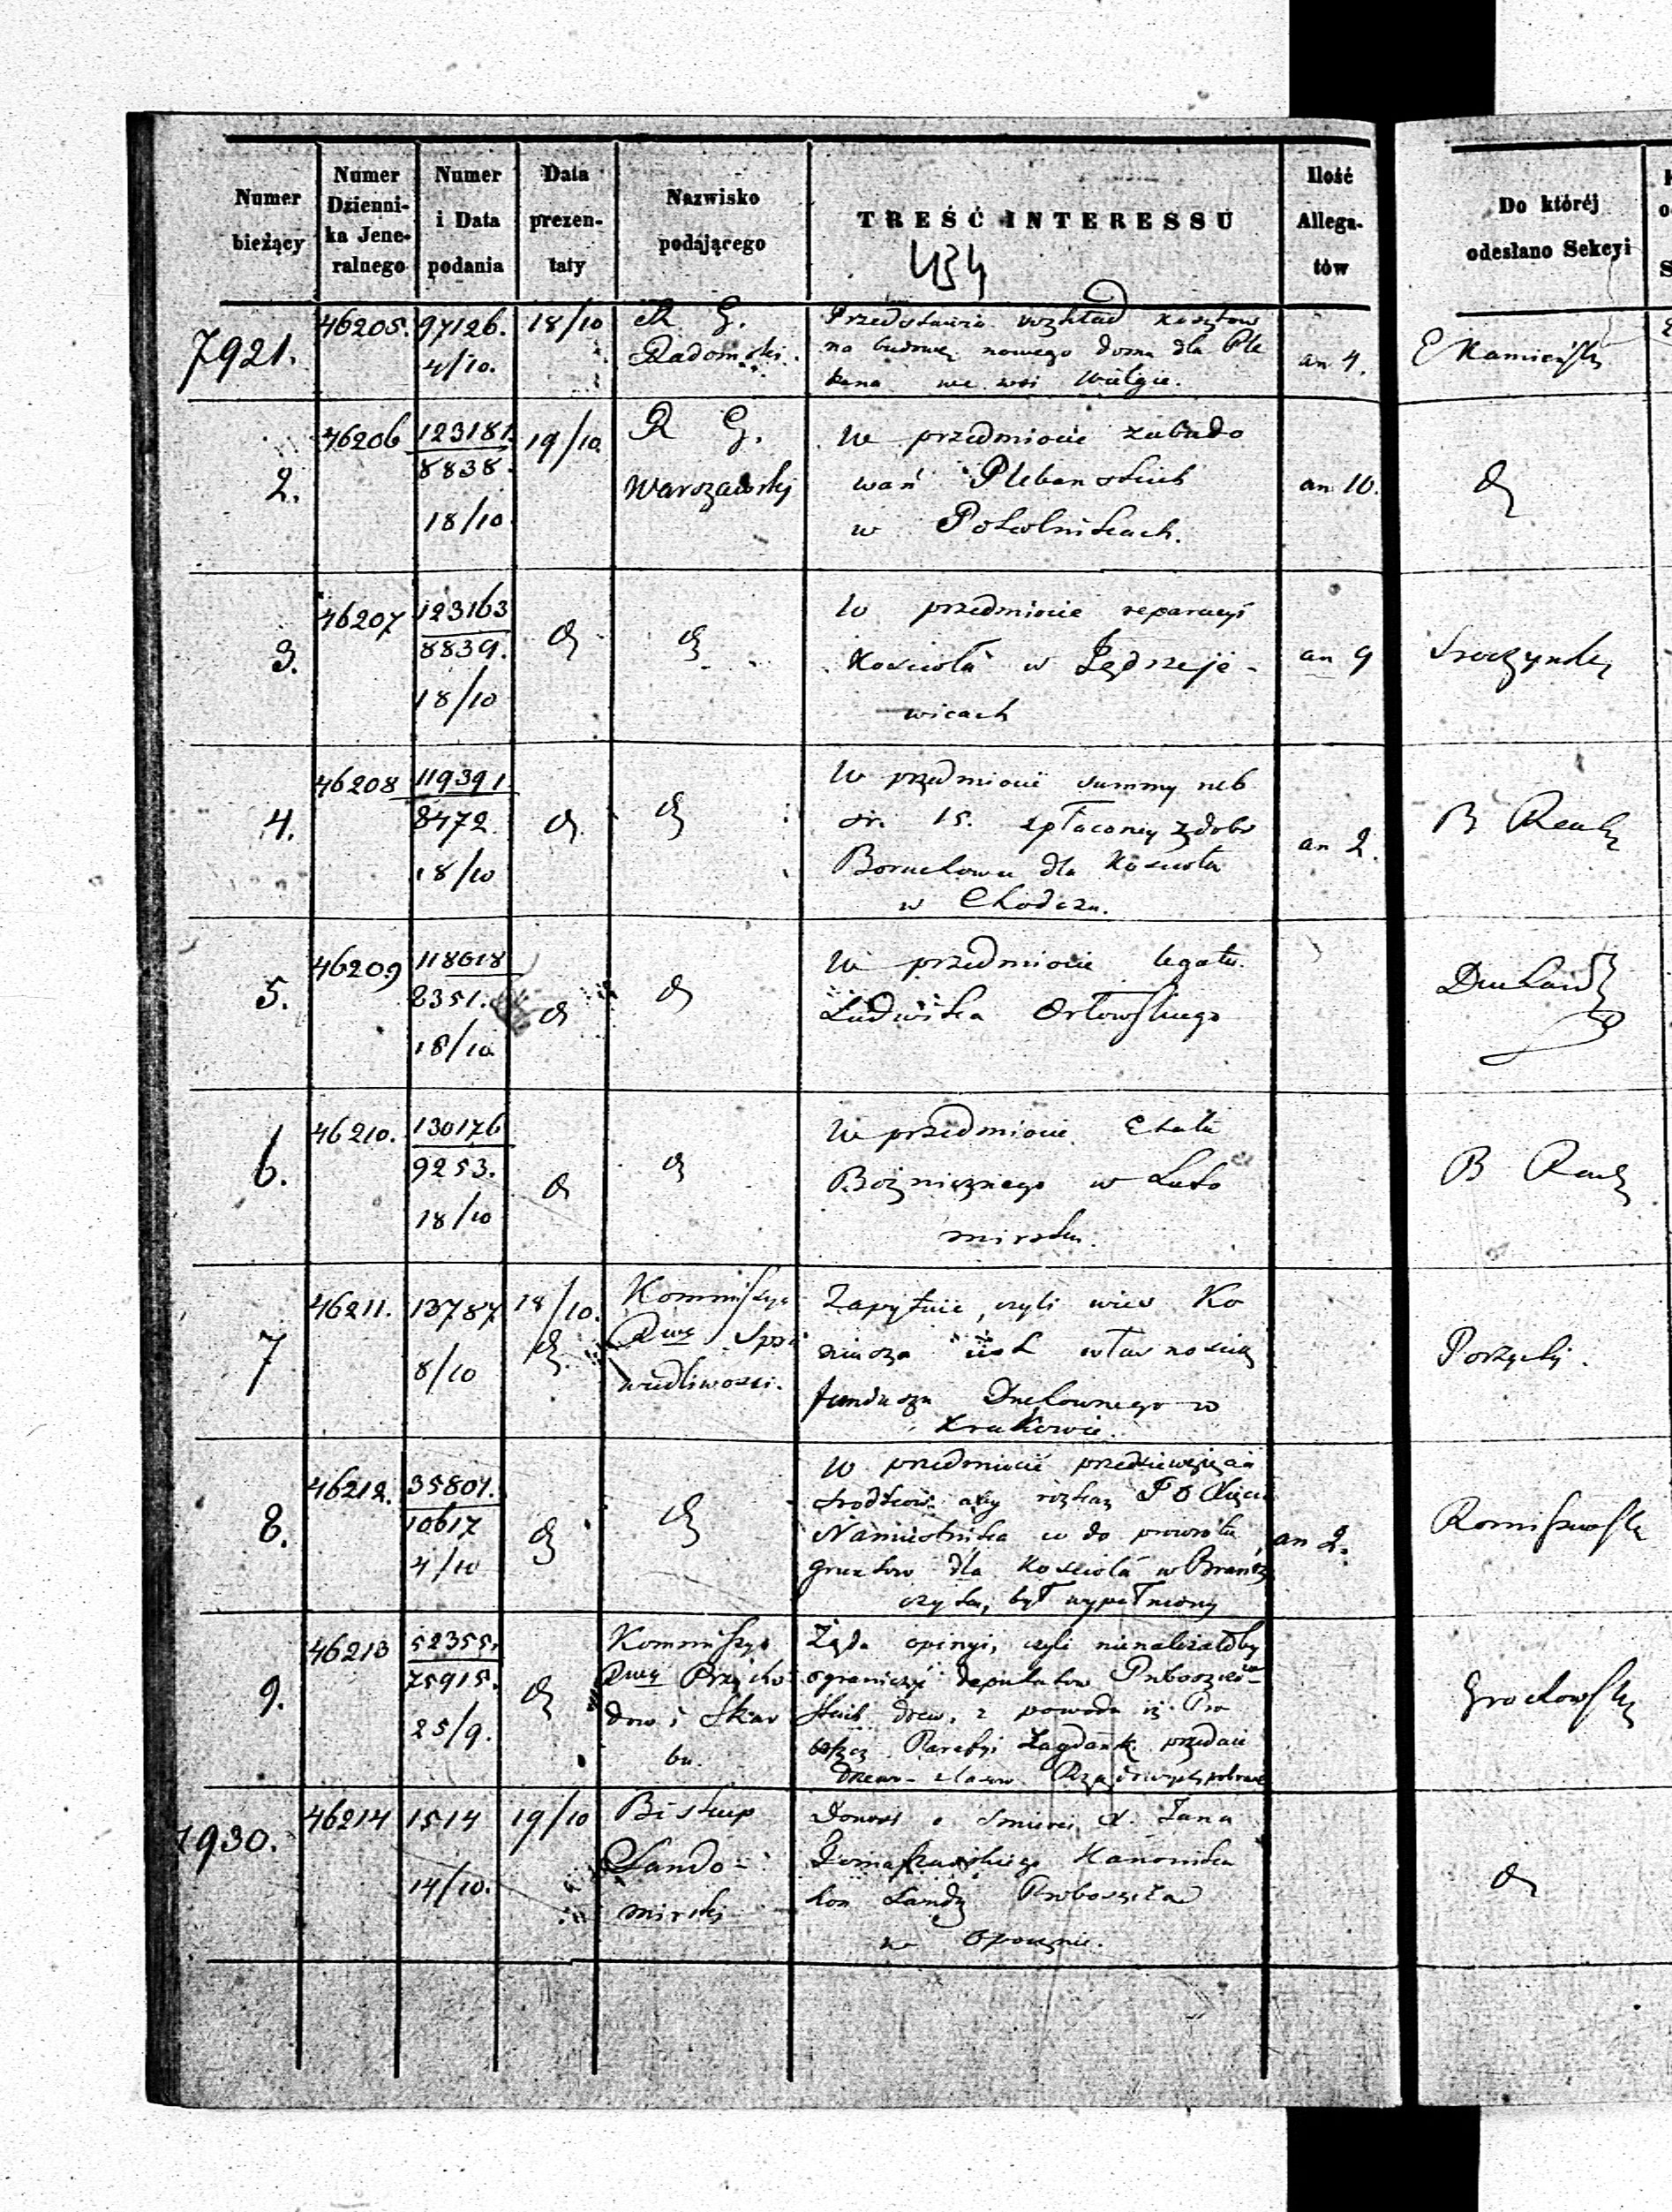 Numer bieżący
Numer Dzienni- ka Jene- ralnego
Numer i Data podania
Data prezen- taty
Nazwisko podającego
TREŚĆ INTERESSU
434
Ilość Allega- tów
Do któréj odesłano Sekcyi
7921.
46205.
97126.
4/10.
18/10
R G.
Radomski.
Przedstawia rozkład kosztow
na budowę nowego domu dla Ple
bana we wsi Wielgie.
an 4.
Kamieński
2.
46206
123181.
8838.
18/10
19/10
R G.
Warszawski
W przedmiocie zabudo
wań Plebanskich
w
an 10.
3.
46207
123163
8839.
18/10
W przedmiocie reparacyi
Kościoła w Jędrzeje-
wicach
an 9
4.
46208
119391
8472.
18/10
W przedmiocie summy
15. spłaconey z dobr
dla Kościoła
w Chodczu.
an 2.
B
5.
46209
118618
8351.
18/10
W przedmiocie legatu
Ludwika Orłowskiego
6.
46210.
130176
9253.
18/10
W przedmiocie Etatu
Bożnicznego w Luto
miersku.
B
7
46211.
13787
8/10
18/10.
Kommissya
Rwa Spra
wiedliwosci.
Zapytuie, czyli wies Ko
niusza iest własnoscią
funduszu Duchownego w
Krakowie.
8.
46212.
35804.
10617
4/10
W przedmiocie przedsiewzięcia
srodkow aby rozkaz JO Xięcia
Namiestnika co do powrotu
gruntow dla Kościoła w
był wypełniony
an 2.
9.
46213
52355.
75915.
25/9.
Kommissya
Rwa Przycho
dow i Skar
bu.
Żąda opinyi, czyli nienależałoby
ograniczyć deputatow Proboszczo-
skich drew, z powodu iż Pro
boszcz Parafyi przedaie
drzewo z lasow Rządowych pobrane
Grochowski
7930.
46214
1514
14/10.
19/10
Biskup
Sando-
mirski
Donosi o smierci X. Jana
Kanonika
Proboszcza
w Opocznie.